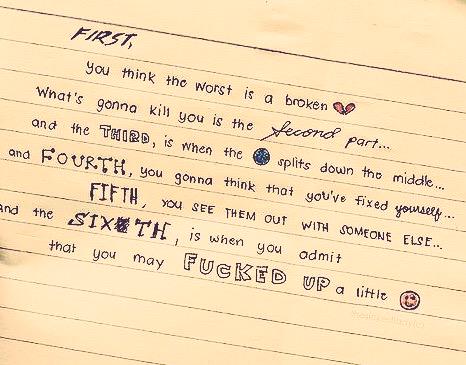 FIRST,
you think the worst is a broken 💔
What's gonna kill you is the Second part...
and the THIRD, is when the 🌎 splits down the middle...
and FOURTH, you gonna think that you've fixed yourself...
FIFTH, YOU SEE THEM OUT WITH SOMEONE ELSE...
and the SIXTH, is when you admit
that you may FUCKED UP a little 🙂